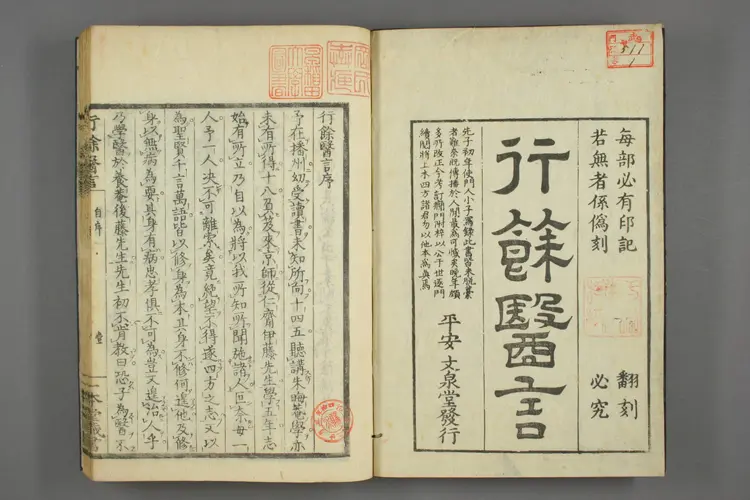 毎部必有印記
若無者係偽刻
翻刻
必究
行餘醫言
先子初年使門人小子錄此書皆未脱藁
者雖奈既傳播於人間最為可懼矣晩年頗
多所改正今考訂附梓以公于世逐門
續開將上木四方諸君勿以他本為真焉
平安 文泉堂發行
511
1
行餘醫言序
予在播州幼受讀書未知所向十四五聽講朱晦菴學亦
未有所得十八負笈來京師從仁齋伊藤先生學五年志
始有所立乃自以為將以我所知所聞施諸人但奈每一
人予一人决不可離索矣竟絶望不得遂四方之志又以
為聖賢千言萬語皆以修身為本其身不修何遑他及修
身以無病為要其身有病忠孝俱不可為豈又遑治人乎
乃學醫於養菴後藤先生先生初不肯教曰恐子為醫不
行餘醫言
自序